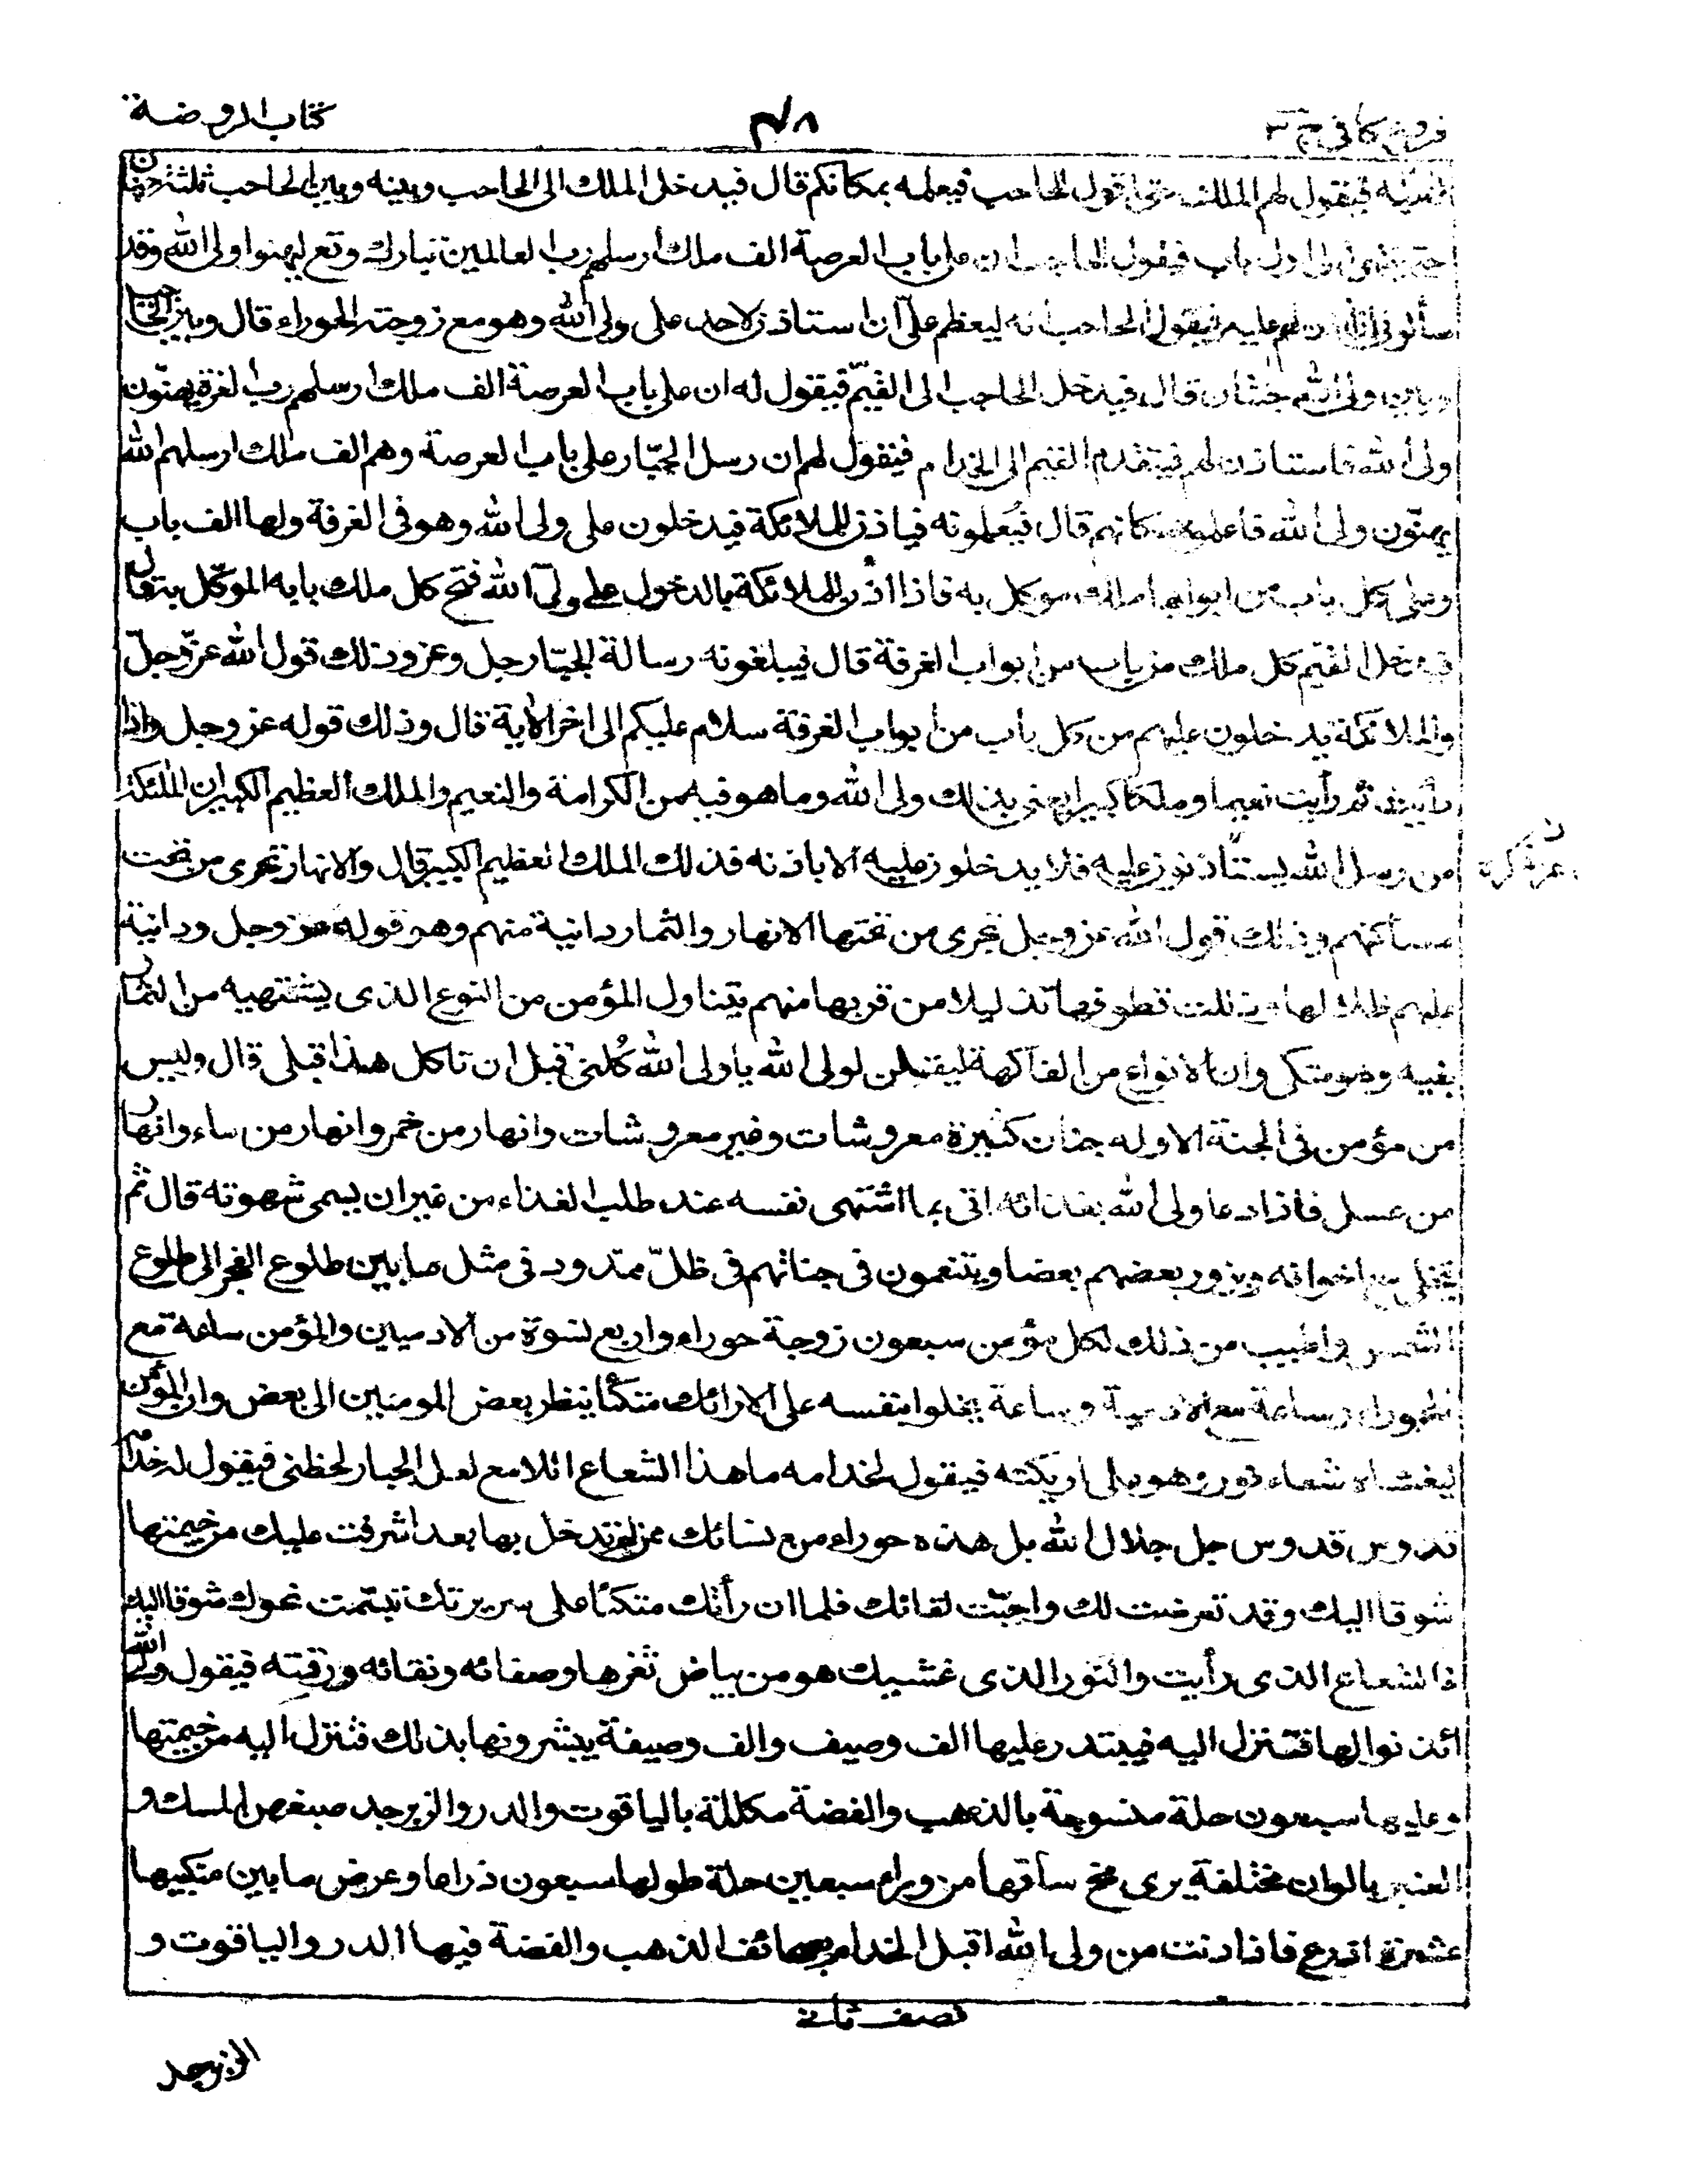 فروع كافى ج ٣
٤٨
كتاب الروضة
فيقول لهم الملك حتى اقول للحاجب فيعلمه بمكانكم قال فيدخل الملك الى الحاجب وبينه وبين الحاجب ثلثة جنان
حتى ينتهى الى اول باب فيقول للحاجب ان على باب العرصة الف ملك ارسلهم رب العالمين تبارك وتع ليهنوا ولى الله وقد
سألونى ان اذن لهم عليه فيقول الحاجب انه ليعظم علىّ ان استاذن لاحد على ولى الله وهو مع زوجته الحوراء قال وبين الحاجب
وبين ولى الله جنتان قال فيدخل الحاجب الى القيّم فيقول له ان على باب العرصة الف ملك ارسلهم رب العزة يهنّون
ولى الله فاستاذن لهم فيتقدم القيم الى الخدام فيقول لهم ان رسل الجبّار على باب العرصة وهم الف ملك ارسلهم الله
يهنّون ولى الله فاعلموه بمكانهم قال فيعلمونه فياذن للملائكة فيدخلون على ولى الله وهو فى الغرفة ولها الف باب
وعلى كل باب من ابوابها ملك موكل به فاذا اذن للملائكة بالدخول على ولىّ الله فتح كل ملك بابه الموكّل به قال
فيدخل القيّم كل ملك من باب من ابواب الغرفة قال فيبلغونه رسالة الجبّار جل وعز وذلك قول الله عزّ وجلّ
والملائكة يدخلون عليهم من كل باب من ابواب الغرفة سلام عليكم الى اخر الاية قال وذلك قوله عز وجل واذا
رأيت ثم رأيت نعيما وملكا كبيرا يعنى بذلك ولى الله وما هو فيه من الكرامة والنعيم والملك العظيم الكبير ان الملئكة
من رسل الله يستاذنون عليه فلا يدخلون عليه الا باذنه فذلك الملك العظيم الكبير قال والانهار تجرى من تحت
مساكنهم وذلك قول الله عز وجل تجرى من تحتها الانهار والثمار دانية منهم وهو قوله عز وجل ودانية
عليهم ظلالها وذللت قطوفها تذليلا من قربها منهم يتناول المؤمن من النوع الذى يشتهيه من الثمار
بفيه وهو متكى وان الانواع من الفاكهة ليقلن لولى الله يا ولى الله كُلنى قبل ان تاكل هذا قبلى قال وليس
من مؤمن فى الجنة الا وله جنان كثيرة معروشات وغير معروشات وانهار من خمر وانهار من ماء وانهار
من عسل فاذا دعا ولى الله بغذائه اتى بما اشتهى نفسه عند طلب الغذاء من غير ان يسمى شهوته قال ثم
يتخلى مع اخوانه ويزور بعضهم بعضا ويتنعمون فى جناتهم فى ظلّ ممدود فى مثل ما بين طلوع الفجر الى طلوع
الشمس واطيب من ذلك لكل مؤمن سبعون زوجة حوراء واربع نسوة من الادميين والمؤمن ساعة مع
الحوراء وساعة مع الادمية وساعة يخلوا بنفسه على الارائك متكئا ينظر بعض المومنين الى بعض وان المؤمن
ليغشاه شعاع نور وهو على اريكته فيقول لخدامه ما هذا الشعاع اللامع لعل الجبار لحظنى فيقول له خدامه
قدوس قدوس جل جلال الله بل هذه حوراء من نسائك ممن لم تدخل بها بعد اشرفت عليك من خيمتها
شوقا اليك وقد تعرضت لك واحبّت لقائك فلما ان رأتك متكئا على سريرتك تبسّمت نحوك شوقا اليك
فالشعاع الذى رأيت والنور الذى غشيك هو من بياض ثغرها وصفائه ونقائه ورقته فيقول ولى الله
ائذنوا لها فتنزل اليه فيبتدر عليها الف وصيف والف وصيفة يبشرونها بذلك فتنزل اليه من خيمتها
وعليها سبعون حلة منسوجة بالذهب والفضة مكللة بالياقوت والدر والزبرجد صبغهن المسك و
العنبر بالوان مختلفة يرى مخ ساقها من وراء سبعين حلة طولها سبعون ذراعا وعرض ما بين منكبيها
عشرة اذرع فاذا دنت من ولى الله اقبل الخدام بصحائف الذهب والفضة فيها الدر والياقوت و
نصف ثانى
الزبرجد